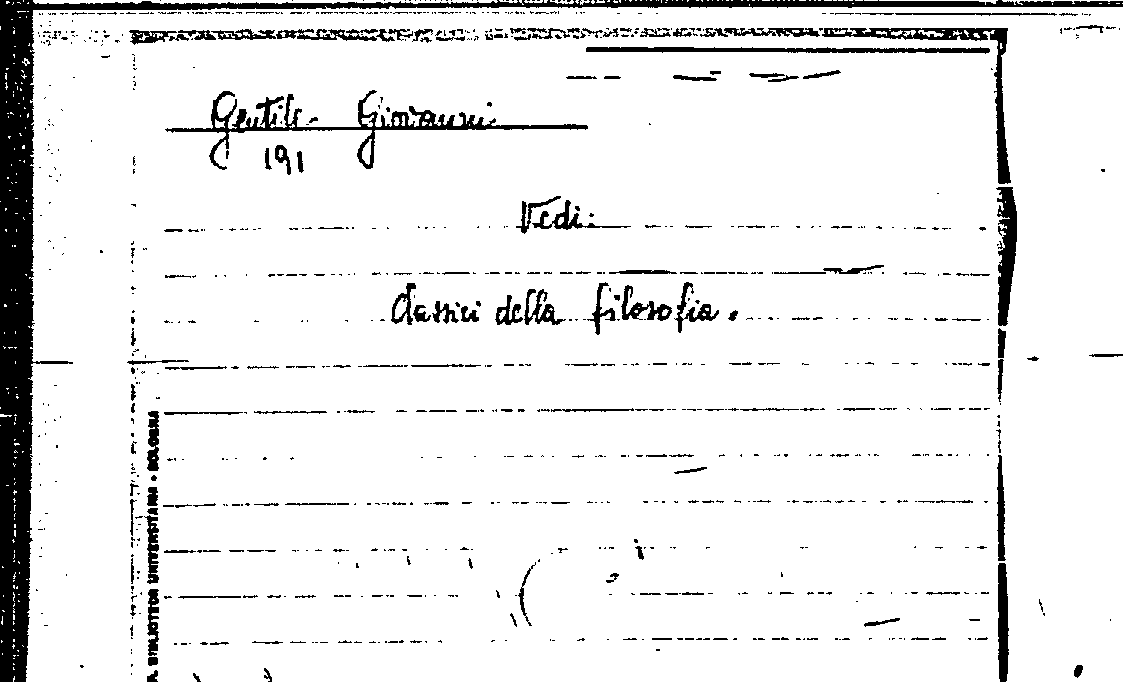 Gentile Giovanni
191
Vedi:
Classici della filosofia.
A. BIBLIOTECA UNIVERSITARIA • BOLOGNA